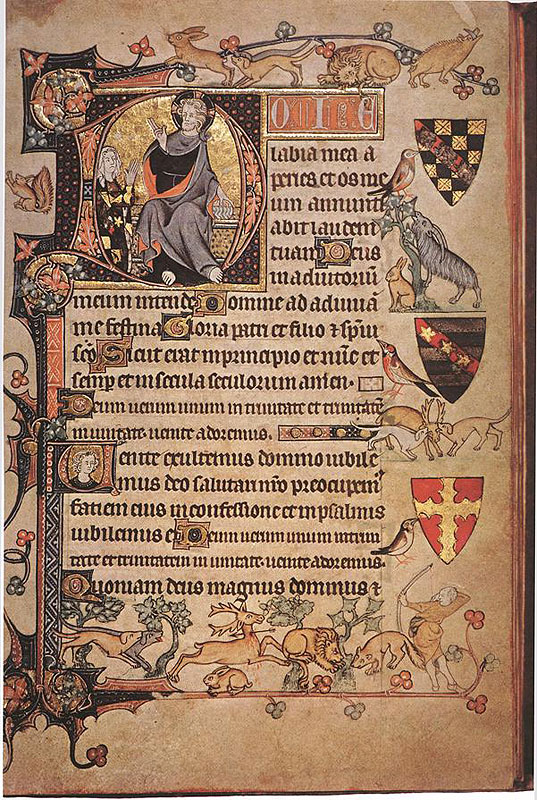 Domine
labia mea a
peries et os me
um annunti
abit laudem
tuam Deus
in adiutoriũ
meum intende Domine ad adiuuã
me festina Gloria patri et filio ⁊ spũi
scõ Sicut erat in principio et nũc et
semp et in secula seculorum amen.
Deum uerum unum in trinitate et trinitatẽ
in unitate uenite adoremus.
Uenite exultemus domino iubile
mus deo salutari nr̃o preocupem᷒
faciem eius in confessione et in psalmis
iubilemus ei Deum uerum unum in trini
tate et trinitatem in unitate uenite adoremus.
Quoniam deus magnus dominus ⁊